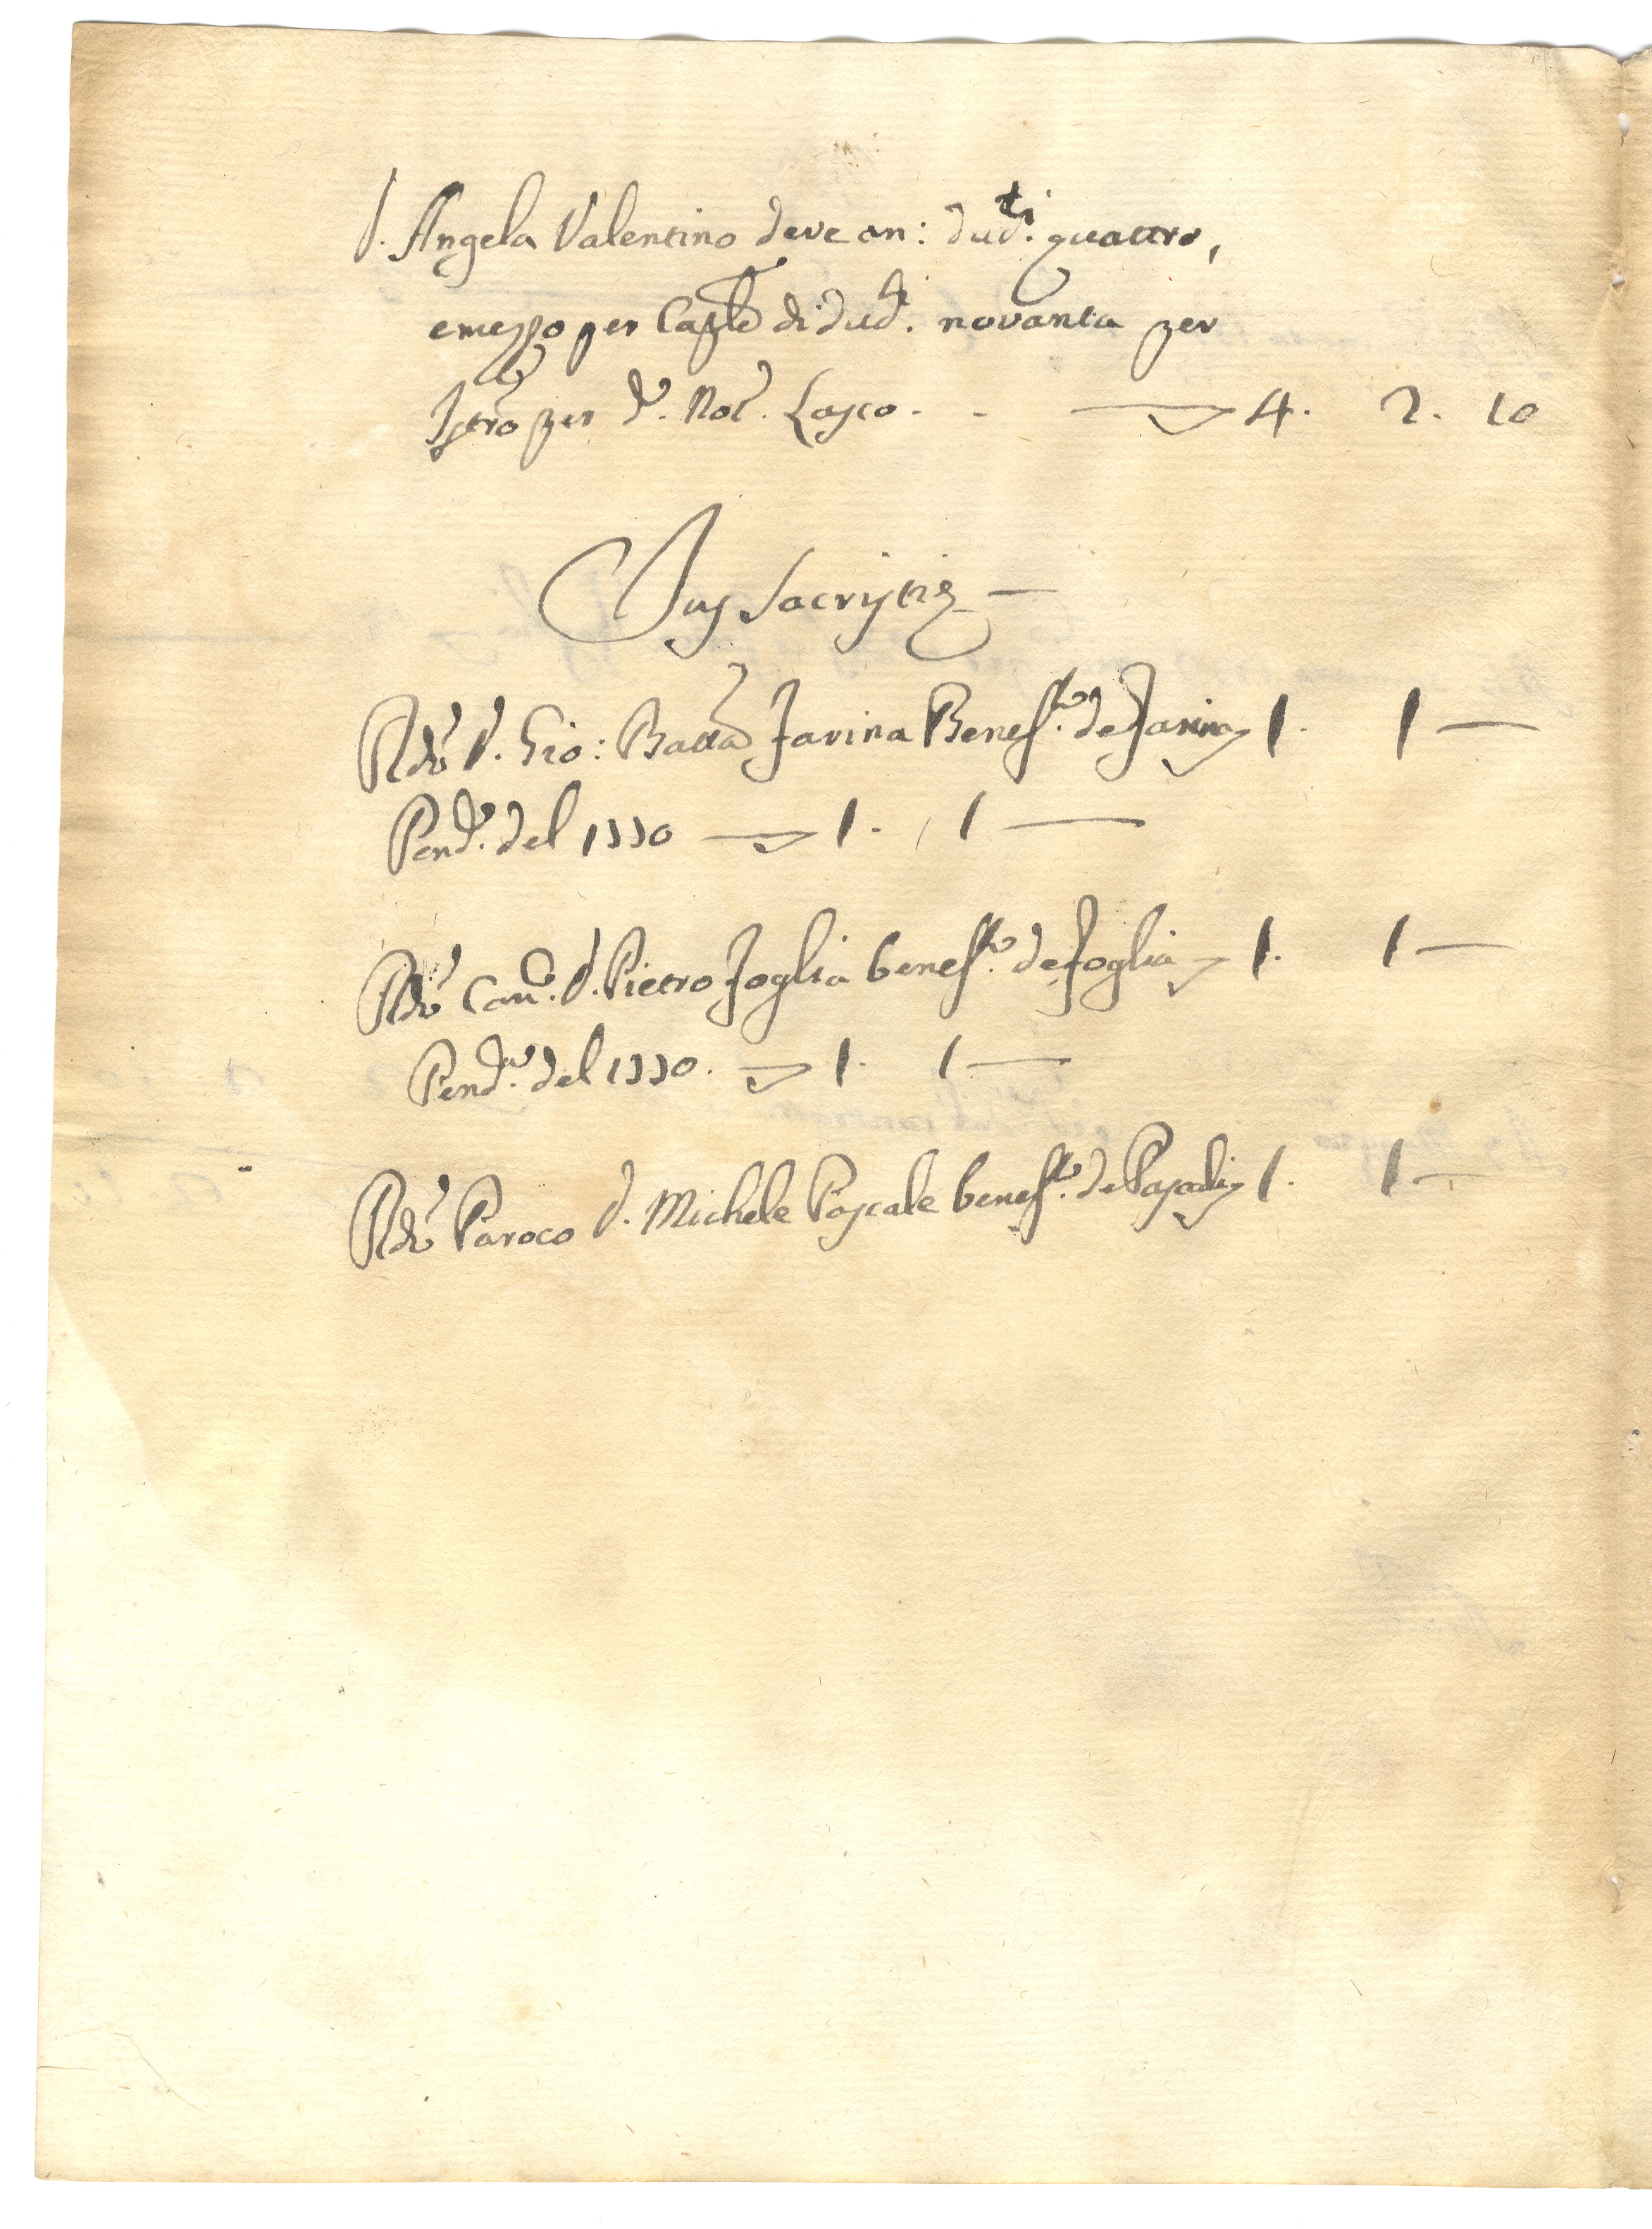 D. Angela Valentino deve an: ducti. quattro,
e mezzo per Caple di ducti. novanta per
Istro per Nor. Lasco. - 4. 2. 10
Jus Sacristiæ —
Rdo D. Gio: Batta Farina Benefto. de Farina 1. 1 —
Pendte. del 1770 — 1. 1 —
Rdo Can. D. Pietro Foglia benefto. de Foglia 1. 1 —
Pendte. del 1770. — 1. 1 —
Rdo Paroco D. Michele Pascale benefto. de Pascali 1. 1 —